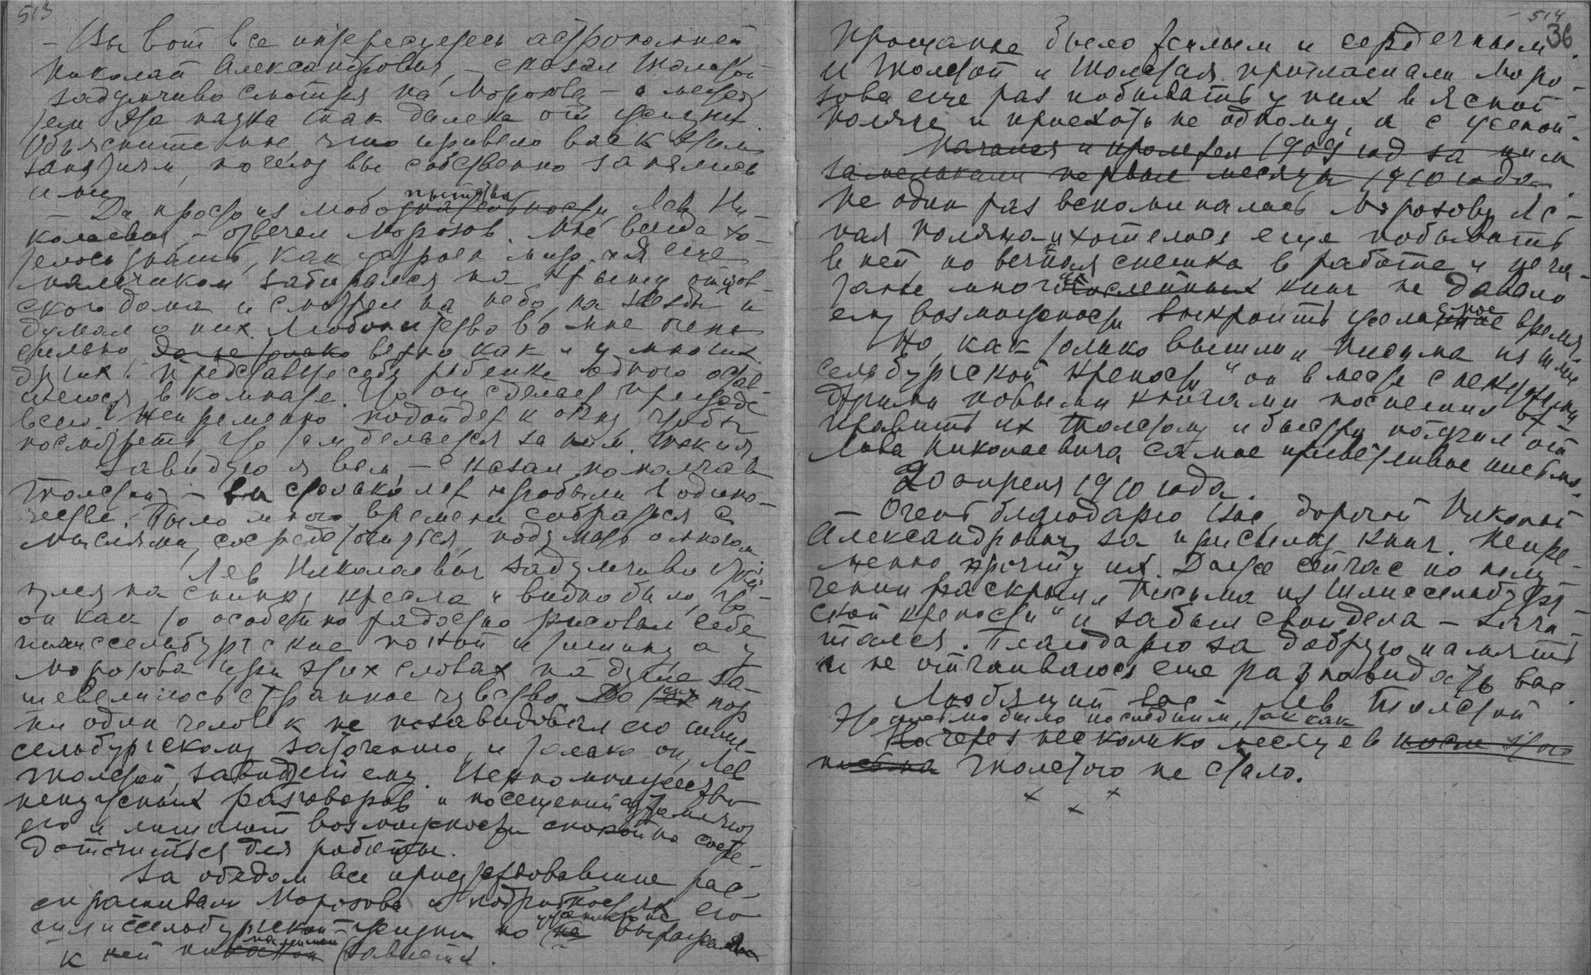 513
— Вы вот все интересуетесь астрономией
Николай Александрович, — сказал Толстой
задумчиво смотря на Морозова — а между
тем эта наука так далека от жизни.
Объясните мне что привело вас к этим
занятиям, почему вы собственно занялись
ими
— Да просто из любопытства Лев Ни-
колаевич, — ответил Морозов. Мне всегда хо-
телось знать, как устроен мир. Я еще
мальчиком забирался на крышу отцов-
ского дома и смотрел на небо, на звезды и
думал о них. Любопытство во мне очень
сильно, верно как и у многих
других. Представьте себе ребенка одного остав-
шегося в комнате. Что он сделает прежде
всего? Непременно подойдет к окну, чтобы
посмотреть что там делается за ним. Так и я
Завидую я вам, — сказал, помолчав
Толстой, — вы столько лет пробыли в одино-
честве. Было много времени собраться с
мыслями, сосредоточиться, подумать о многом
Лев Николаевич задумчиво откину-
лся на спинку кресла и видно было, что
он как то особенно радостно рисовал себе
шлиссельбургские покой и тишину а у
Морозова при этих словах на душе за-
шевелилось странное чувство. До сих пор
ни один человек не позавидовал его шлис-
сельбургскому заточению, и только он, Лев
Толстой, завидует ему. Видно множество
ненужных разговоров и посещений утомляют
его и лишают возможности спокойно сосре-
доточиться для работы.
За обедом все присутствовавшие рас-
спрашивали Морозова о подробностях его
шлиссельбургской жизни но уже никто не выражал
к ней никакой зависти.
514
36
Прощание было теплым и сердечным.
И Толстой и Толстая приглашали Моро-
зова еще раз побывать у них в Ясной
поляне и приехать не одному, а с женой.
Начался и пролетел 1909 год за ним
замелькали первые месяцы 1910 года.
Не один раз вспоминалась Морозову Яс-
ная поляна и хотелось еще побывать
в ней, но вечная спешка в работе и печа-
тание многочисленных книг не давало
ему возможности выкроить желанное время
Но, как только вышли „Письма из Шлис-
сельбургской крепости“ он вместе с некоторыми
другими новыми книгами поспешил от-
править их Толстому и быстро получил от
Льва Николаевича самое приветливое письмо.
20 апреля 1910 года.
— Очень благодарю Вас, дорогой Николай
Александрович, за присылку книг. Непре-
менно прочту их. Даже сейчас по полу-
чении раскрыл „Письма из Шлиссельбург-
ской крепости“ и забыв свои дела — зачи-
тался. Благодарю за добрую память
и не отчаиваюсь еще раз повидать вас.
Любящий вас Лев Толстой
Это письмо было последним, так как
Но через несколько месяцев после этого
письма Толстого не стало.
× × ×